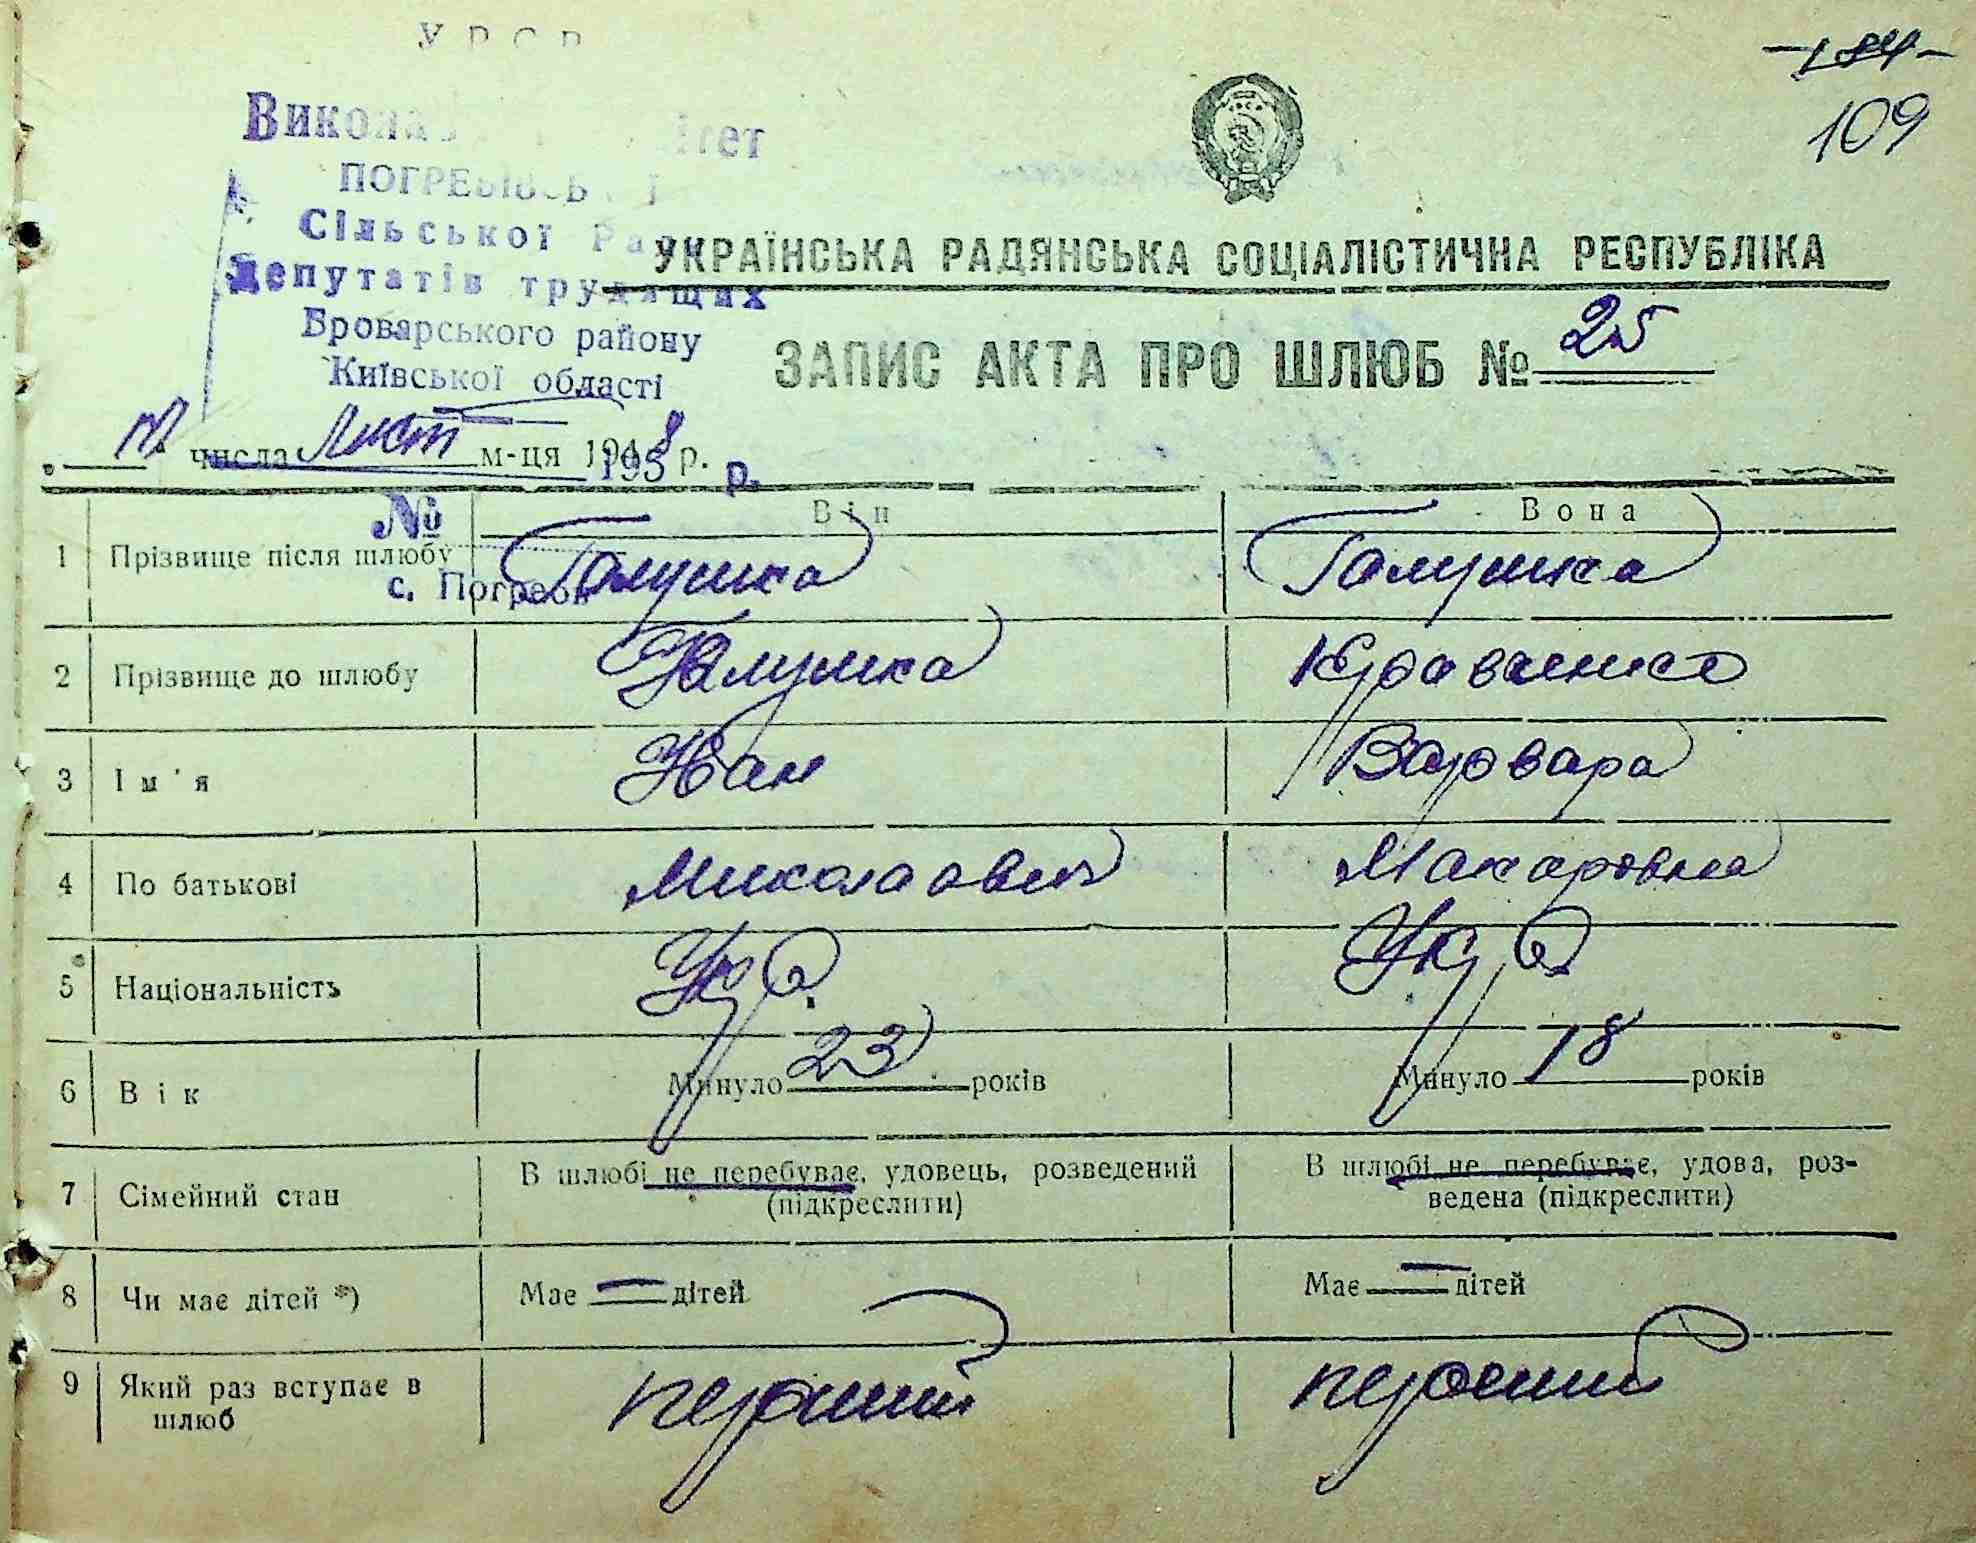 У Р С Р
184
109
Виконавчий комітет
ПОГРЕБІВСЬКОЇ
Сільської Ради
Депутатів трудящих
Броварського району
Київської області
УКРАЇНСЬКА РАДЯНСЬКА СОЦІАЛІСТИЧНА РЕСПУБЛІКА
ЗАПИС АКТА ПРО ШЛЮБ № 25
числа Лист м-ця 1948 р.
195 р.
№
с. Погреби
Він Вона
1 Прізвище після шлюбу Галушка Галушка
2 Прізвище до шлюбу Галушка Кравченко
3 Ім'я Іван Варвара
4 По батькові Миколаович Макаровна
5 Національність Укр. Укр.
6 Вік Минуло 23 років Минуло 18 років
7 Сімейний стан В шлюбі не перебуває, удовець, розведений (підкреслити) В шлюбі не перебуває, удова, роз-
ведена (підкреслити)
8 Чи має дітей *) Має — дітей Має — дітей
9 Який раз вступає в
шлюб перший перший